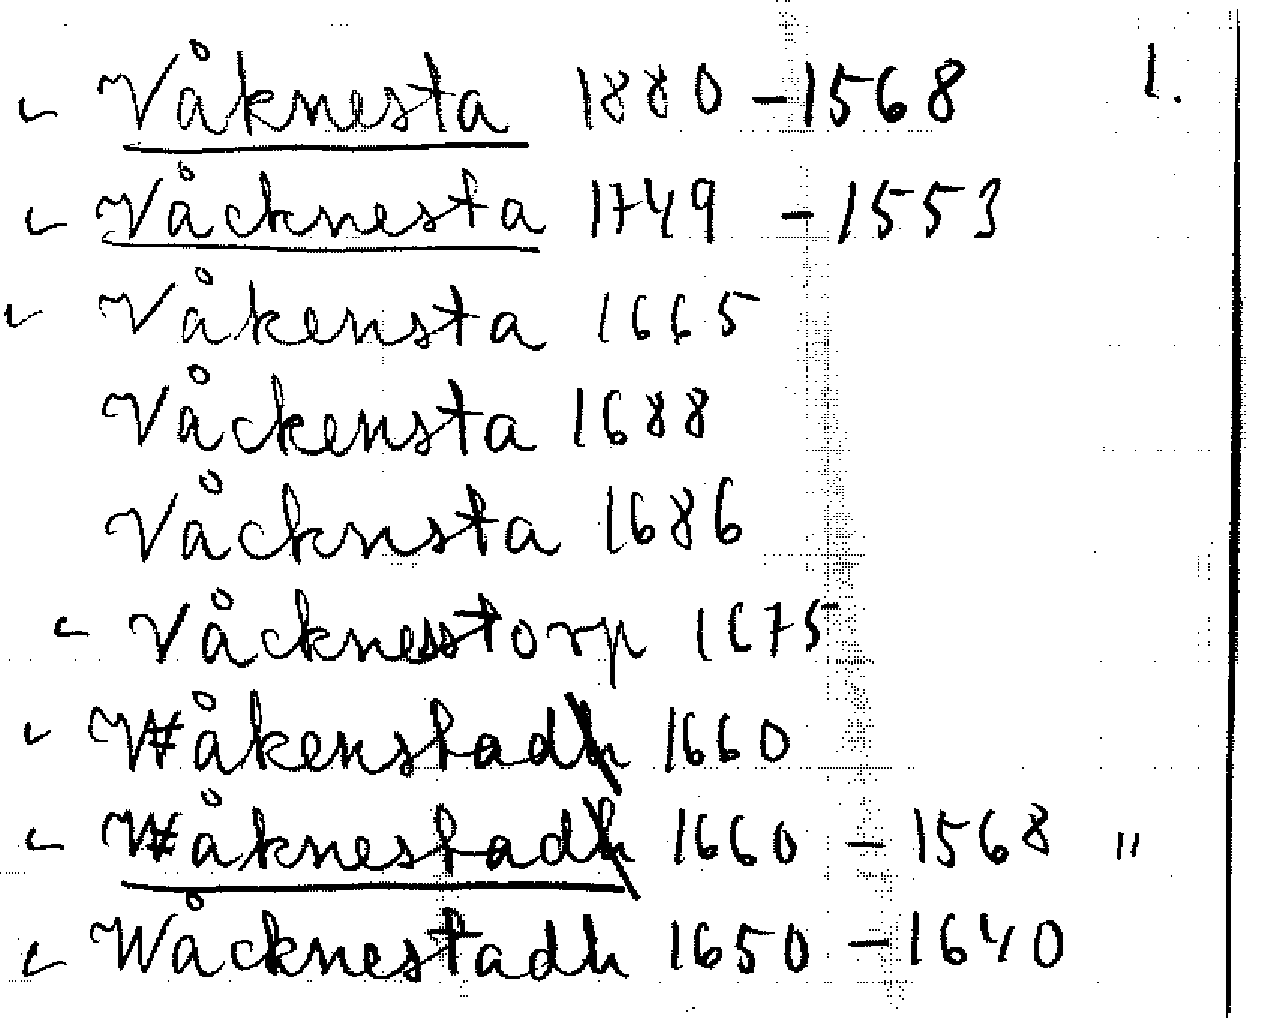 Våknesta 1880 – 1568 1.
Våcknesta 1749 – 1553
Våkensta 1665
Våckensta 1688
Våcknsta 1686
Våcknesstorp 1675
Våkenstad 1660
Våknestad 1660 – 1568 "
Wåcknestadh 1650 – 1640